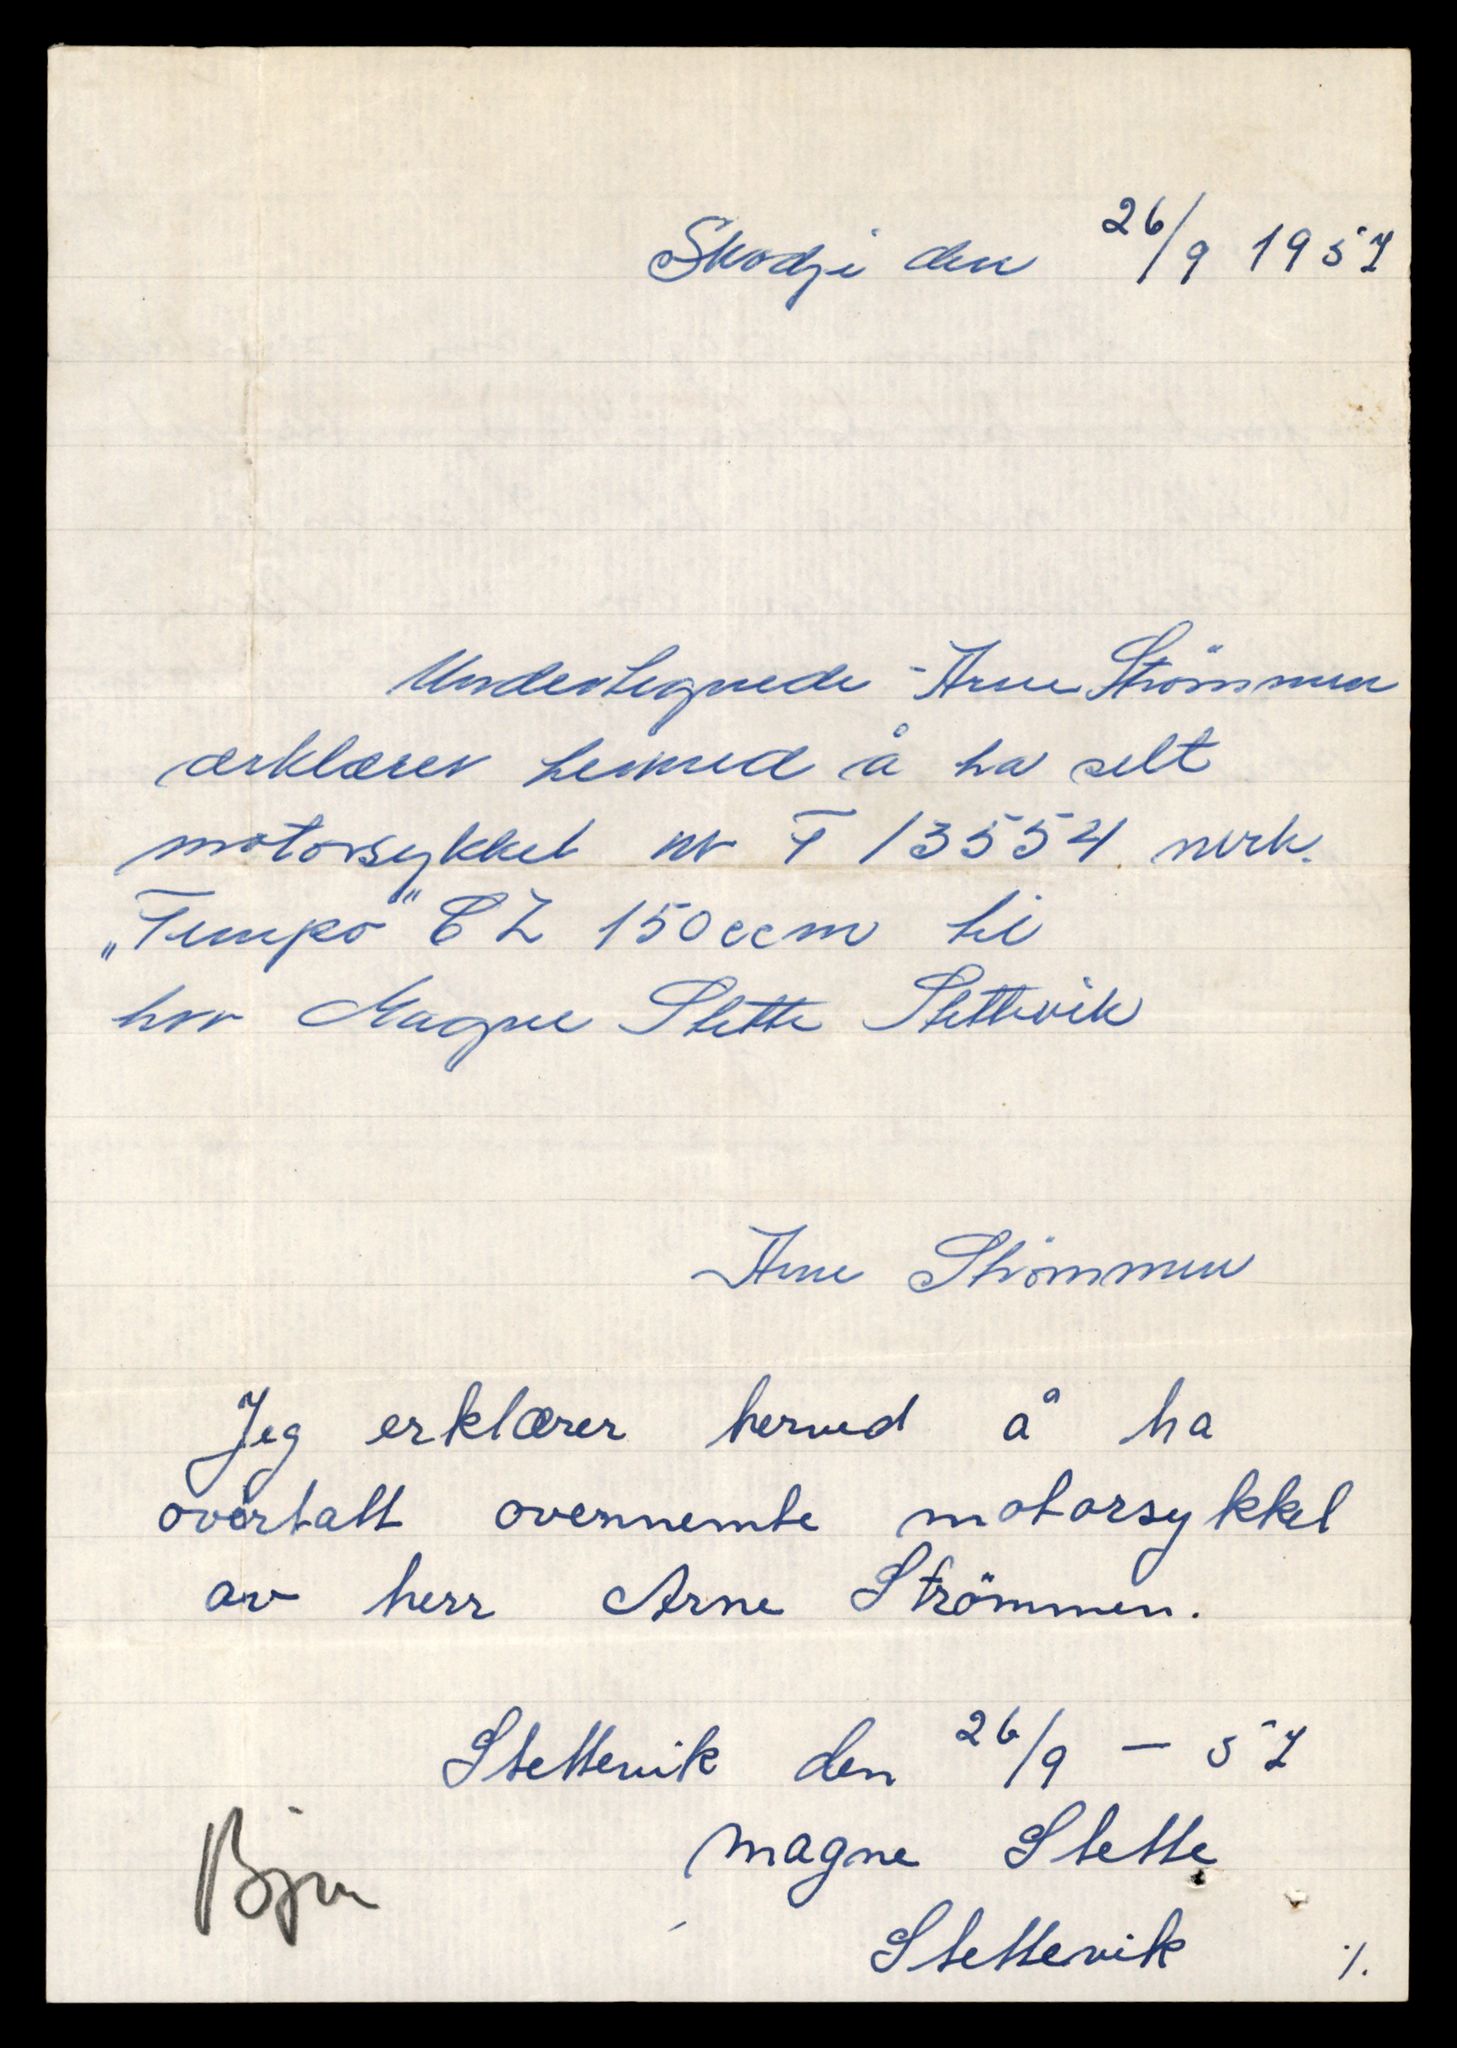 Skodje den 26/9 1957
Undertegnede Arne Strömmen
ærklærer hermed å ha selt
motorsykkel nr F 13554 merk.
„Tempo" CZ 150 ccm til
herr Magne Stette Stettevik
Arne Strömmen
Jeg erklærer herved å ha
overtatt ovennemte motorsykkel
av herr Arne Strömmen.
Stettevik den 26/9 – 57
Magne Stette
Stettevik ./.